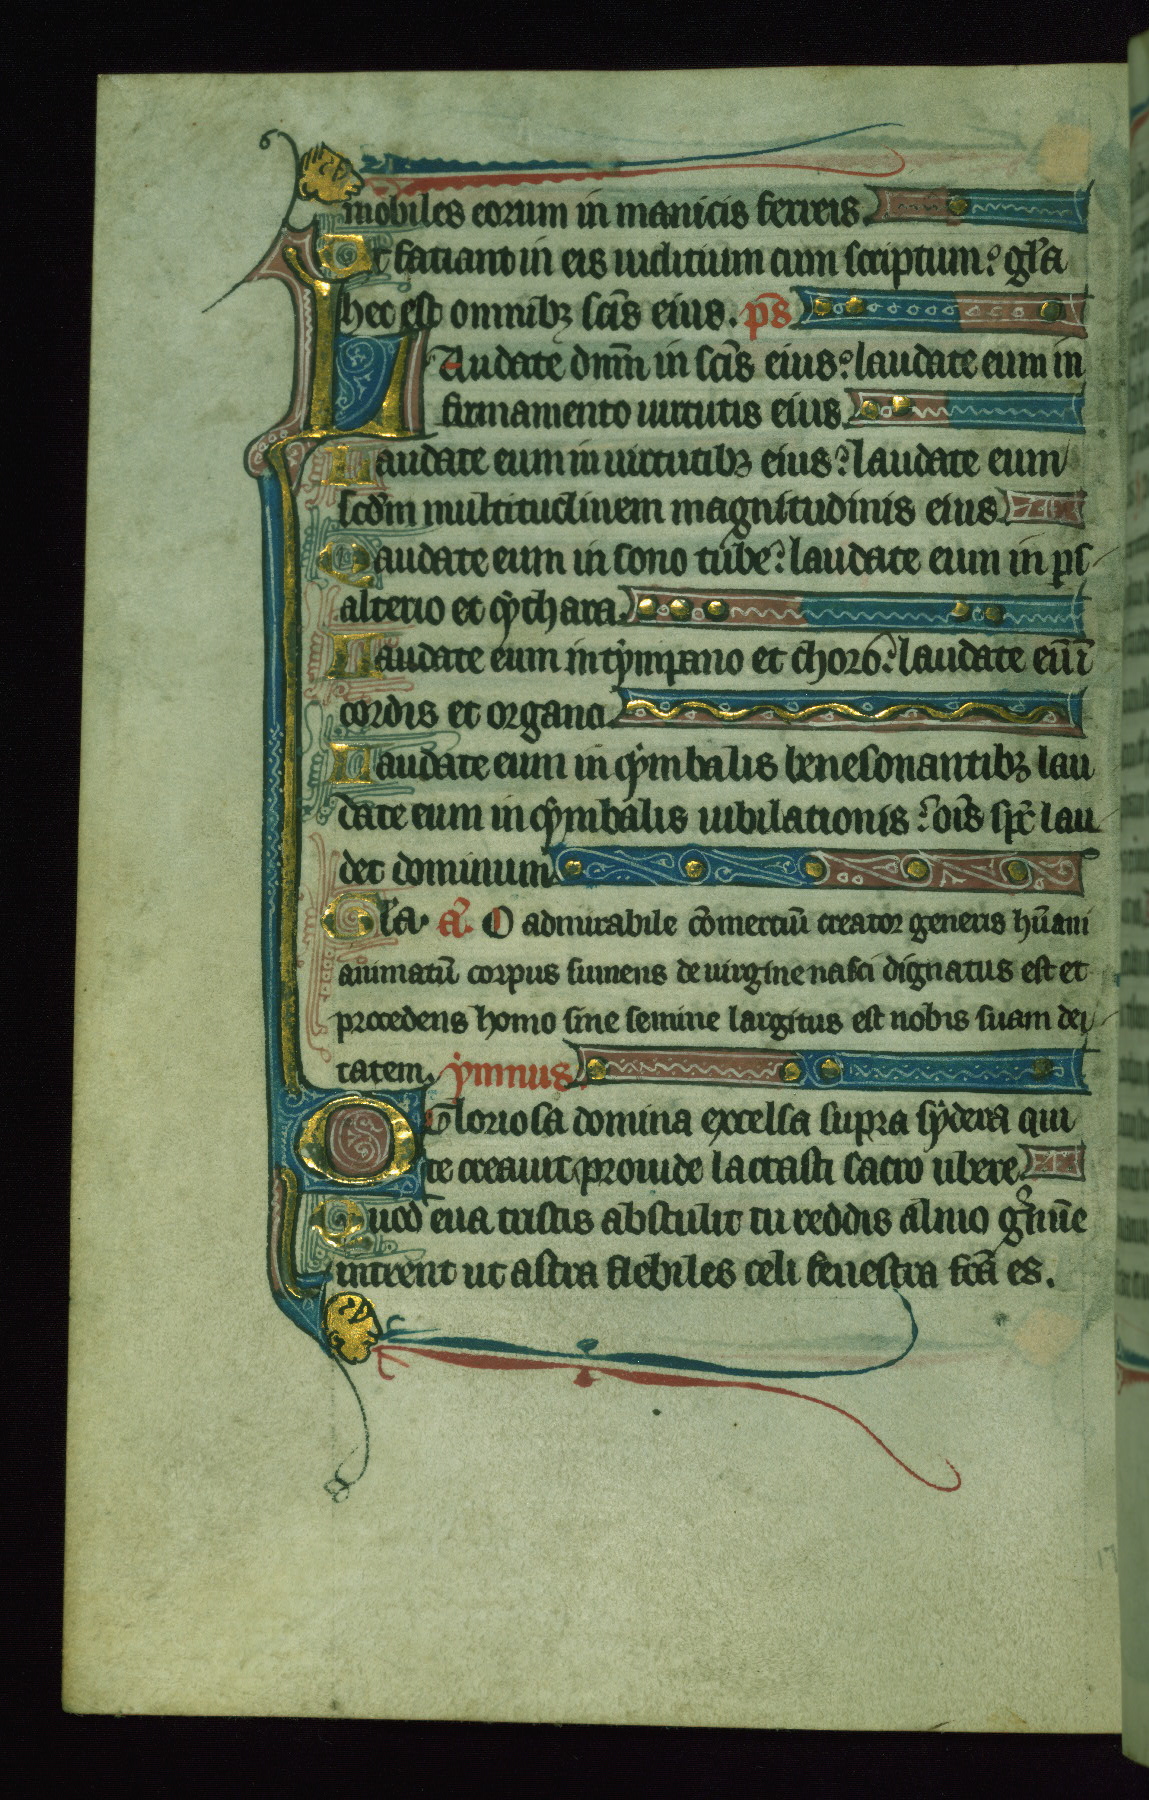 mobiles eorum in manicis ferreis.
Ut faciant in eis iudicium cum scriptum: gl̃a
hec est omnibꝫ scĩs eius. p̃s
LAudate dñm in scĩs eius: laudate eum in
firmamento uirtutis eius.
Laudate eum in uirtutibꝫ eius: laudate eum
scd̃m multitudinem magnitudinis eius
Laudate eum in sono tube: laudate eum in ps
alterio et cythara.
Laudate eum in tympano et choro: laudate eũ ĩ
cordis et organo
Laudate eum in cymbalis benesonantibꝫ lau
date eum in cymbalis iubilationis: oĩs sp̃c lau
det dominum.
Gl̃a. ã. O admirabile c̃omerciũ creator generis hũani
animatũ corpus sumens de uirgine nasci dignatus est et
procedens homo sine semine largitus est nobis suam dei
tatem. ymnus.
O Gloriosa domina excelsa supra sydera qui
te creauit prouide lactasti sacro ubere
Quod eua tristis abstulit tu reddis almo g̃mĩe
intrent ut astra flebiles celi fenestra fc̃a es.